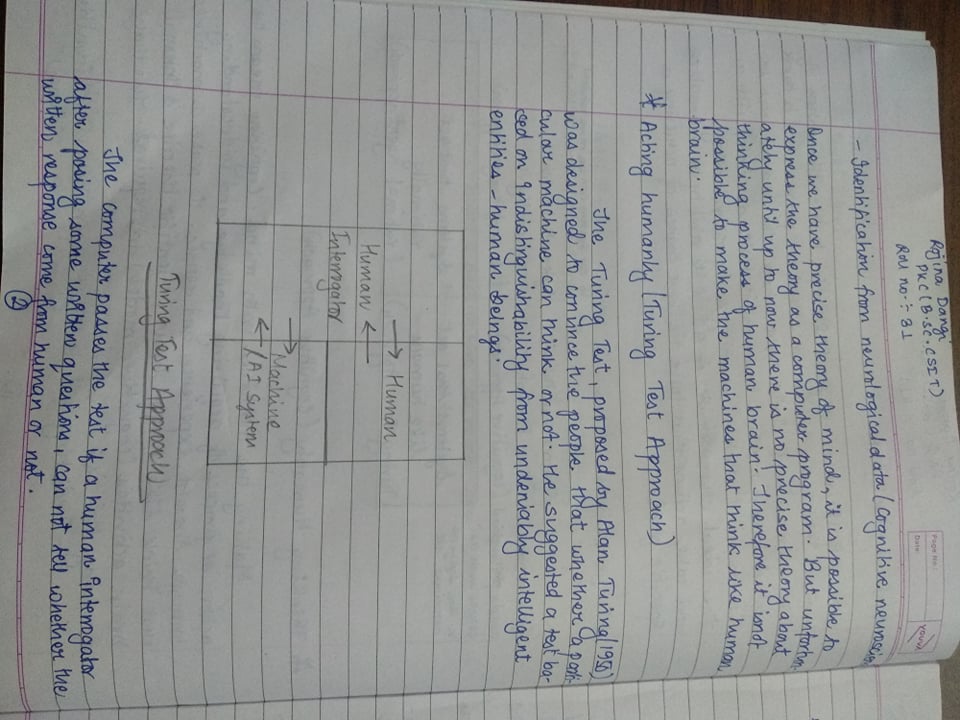 Rojina Dangi
PKC (B.SC.CSIT)
Roll no:- 31
Page No.:
Date:
YOUVA
- Identification from neurological data (Cognitive neuroscien
Once we have precise theory of mind, it is possible to
express the theory as a computer program. But unfortun-
ately until up to now there is no precise theory about
thinking process of human brain. Therefore it isnot
possible to make the machines that think like human
brain.
* Acting humanly (Turing Test Approach)
The Turing Test, proposed by Alan Turing (1950)
was designed to convince the people that whether a parti-
cular machine can think or not. He suggested a test ba-
sed on indistinguishability from undeniably intelligent
entities - human beings.
→ Human
Human ←
Interrogator
→
Machine
← /AI System
Turing Test Approach
The computer passes the test if a human interrogator
after posing some written questions, can not tell whether the
written response come from human or not.
2